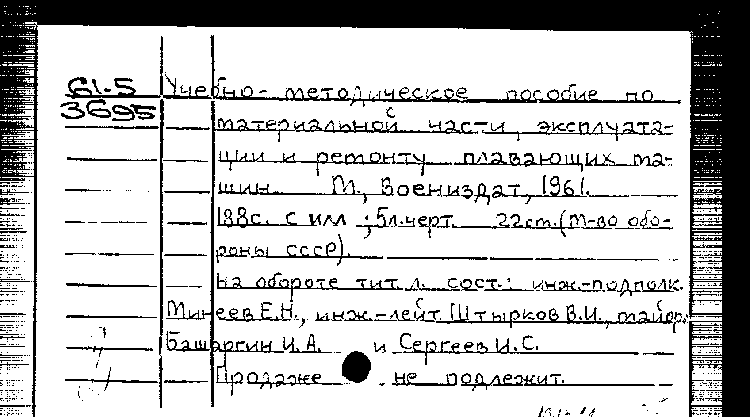 61-5 Учебно-методическое пособие по
3695
материальной части, эксплуата-
ции и ремонту плавающих ма-
шин. М., Воениздат, 1961.
188с. с илл.; 5л.черт. 22см.(М-во обо-
роны СССР).
На обороте тит.л. сост.: инж.-подполк.
Минеев Е.Н., инж.-лейт Штырков В.И., майор.
Башаргин И.А. и Сергеев И.С.
Продаже не подлежит.